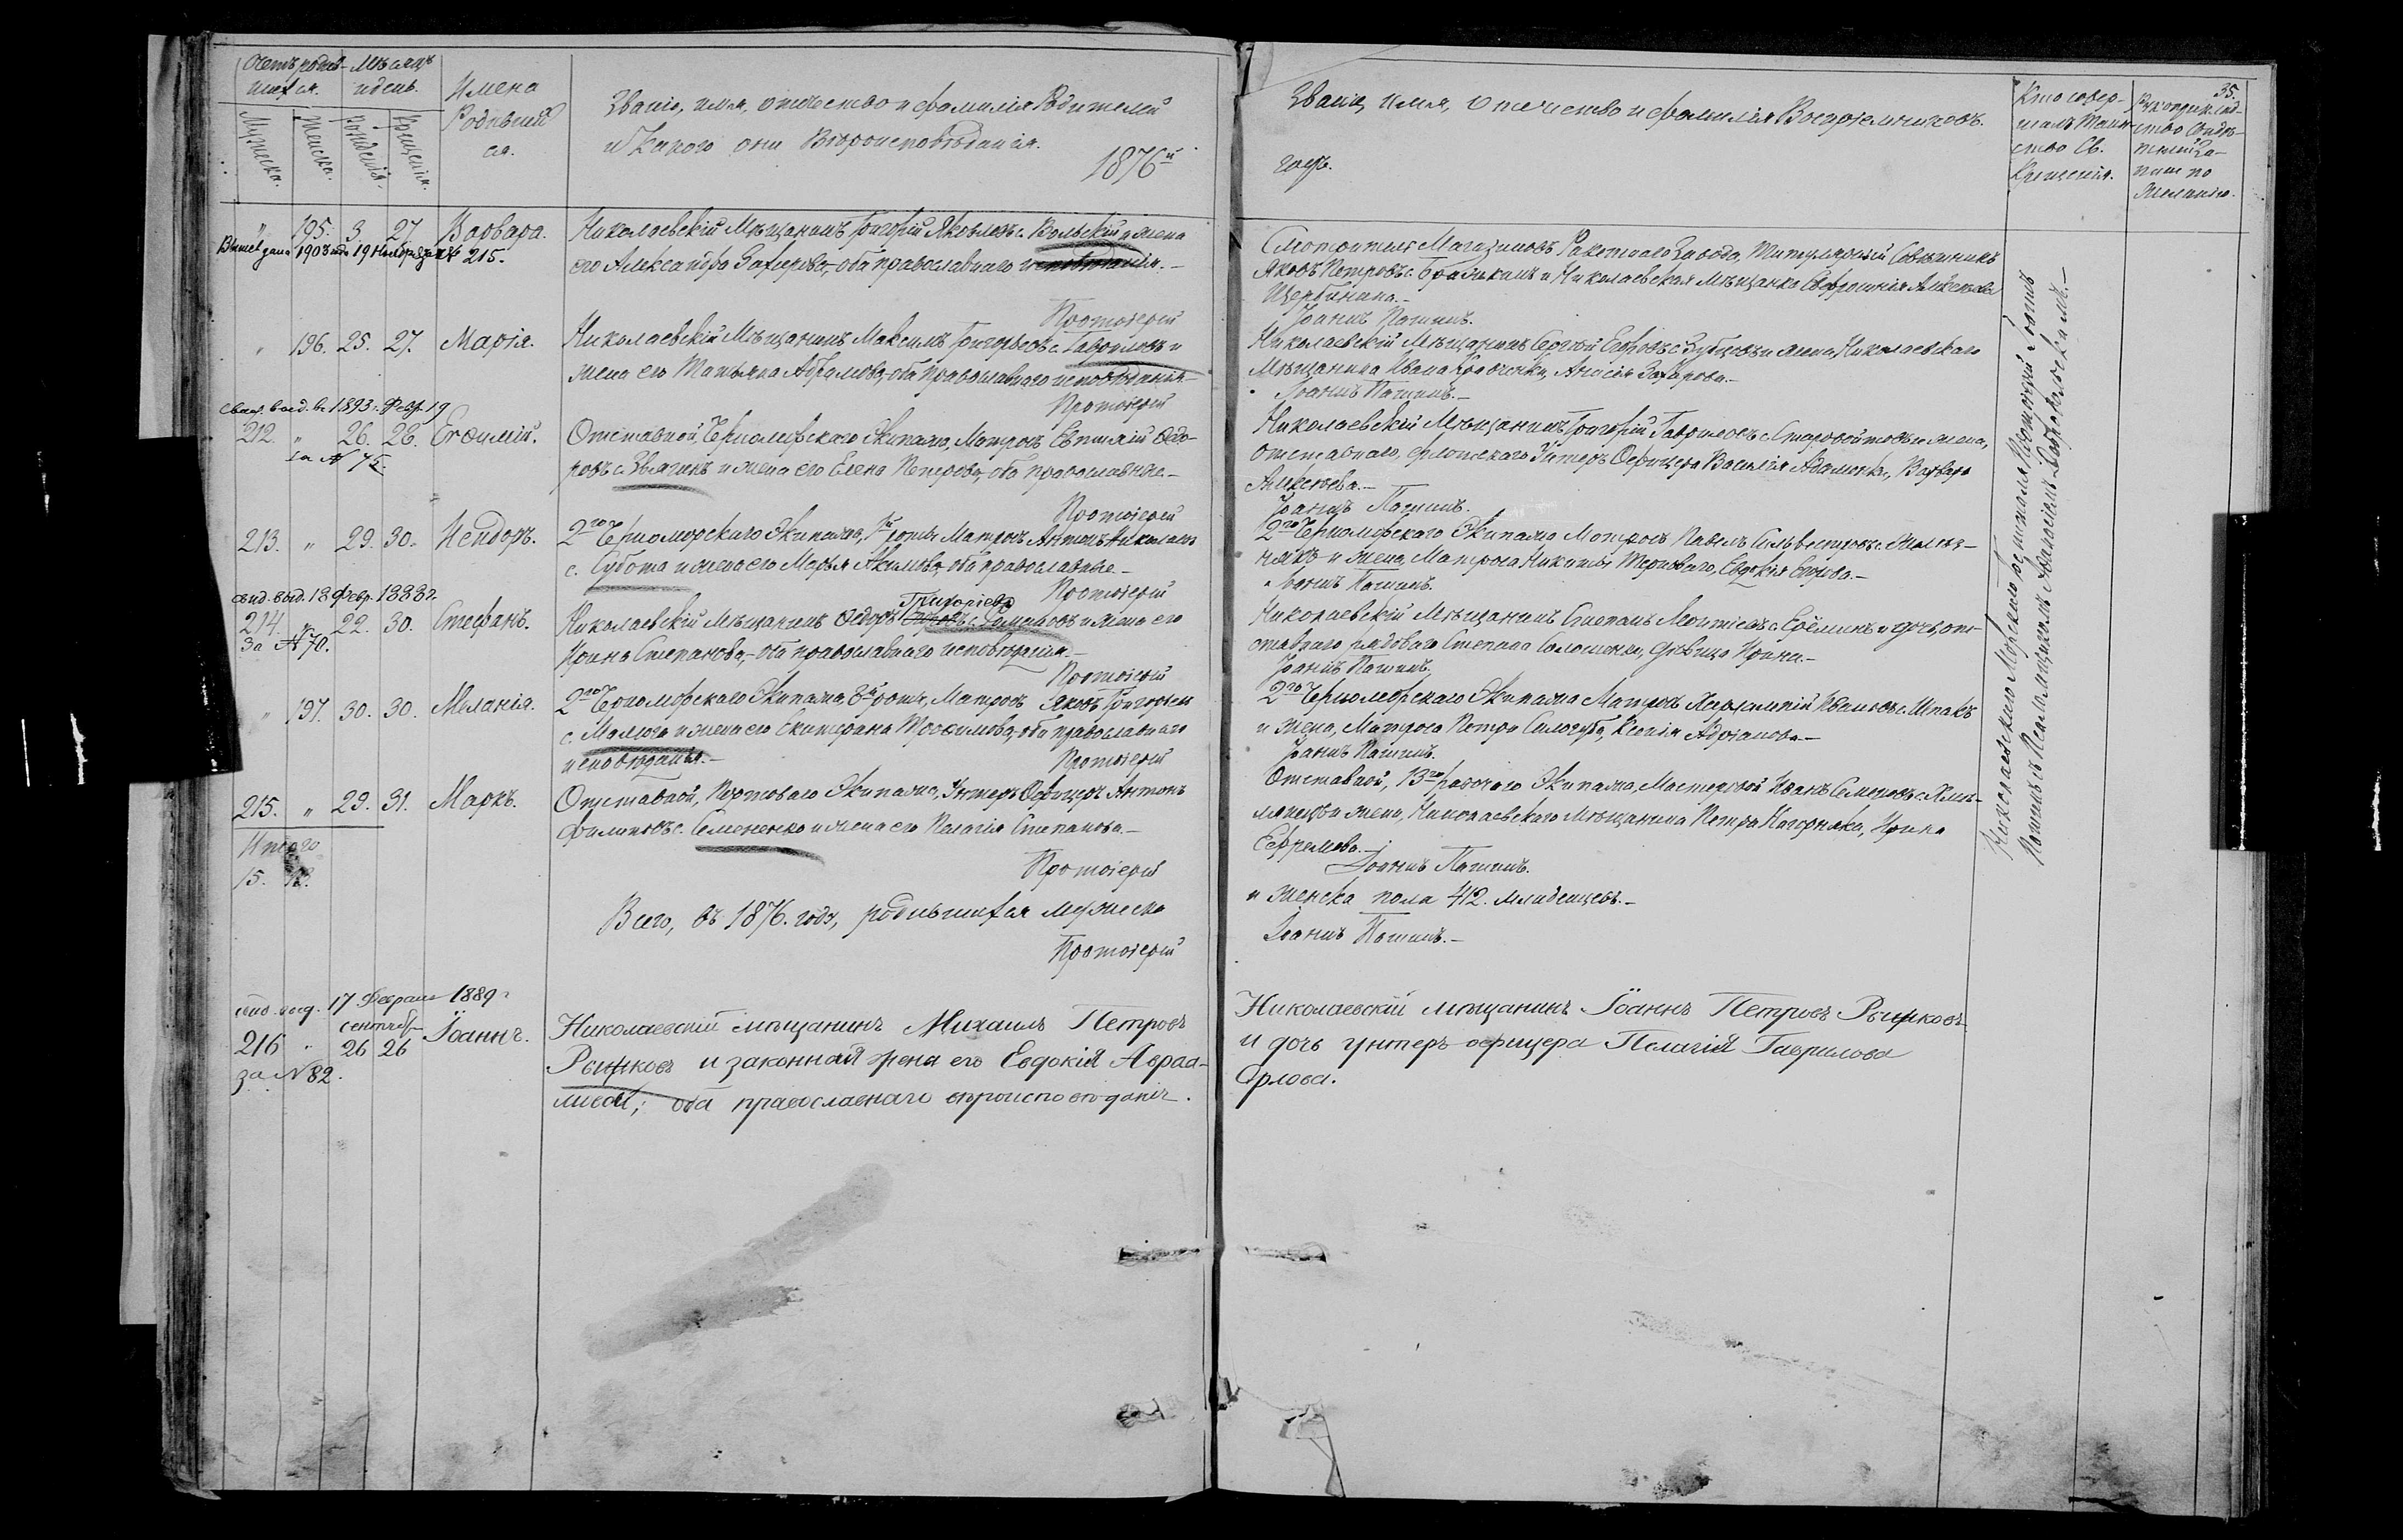 Счетъ родив- Мѣсяцъ
шихся. и день. Имена
Мужеска. Женска. Рожденія. Крещенія. Родивших
ся.
Званіе, имя, отчество и фамилія Родителей
и какого они Вѣроисповѣданія.
1876й
" 195. 3. 27. Варвара. Николаевскій Мѣщанинъ Григорій Яковлевъ с. Вольскій и жена
Выпись дана 1903 года 19 Ноября за № 215.
его Александра Захарова, оба православнаго исповѣданія.-
Протоіерей
" 196. 25. 27. Марія. Николаевскій Мѣщанинъ Максимъ Григорьевъ с. Гавриловъ и
жена его Татьяна Абрамова, оба православнаго исповѣданія.-
Протоіерей
свид. выд. въ 1893 г. Февр. 19
212. " 26. 28. Евфимій. Отставной, Черноморскаго Экипажа, Матросъ Евтихій Федо-
за № 75.
ровъ с. Звягинъ и жена его Елена Петрова, оба православные.-
Протоіерей
213. " 29. 30. Исидоръ. 2го Черноморскаго Экипажа, 1й роты Матросъ Антонъ Николаевъ
с. Субота и жена его Марья Акимова, оба православные.-
Протоіерей
свид. выд. 18 Февр. 1888 г.
Григорьевъ
214. " 22. 30. Стефанъ. Николаевскій Мѣщанинъ Федоръ с. Симоновъ и жена его
за № 70.
Ирина Степанова, оба православнаго исповѣданія.-
Протоіерей
" 197. 30. 30. Меланія. 2го Черноморскаго Экипажа, 8й роты, Матросъ Яковъ Григорьевъ
с. Малюга и жена его Екатерина Трофимова, оба православнаго
исповѣданія.-
Протоіерей
215. " 29. 31. Маркъ. Отставной, Портоваго Экипажа, Унтеръ Офицеръ Антонъ
Филиповъ с. Семененко и жена его Пелагія Степанова.-
Итого
Протоіерей
15.
Всего, въ 1876. году, родившихся мужеска
Протоіерей
свид. выд. 17 Февраля 1889 г.
сентяб.
216 " 26 26 Іоаннъ. Николаевскій мѣщанинъ Михаилъ Петровъ
за № 82.
Рыжковъ и законная жена его Евдокія Авраа-
миева; оба православнаго вѣроисповѣданія.
35.
Званіе, имя, отечество и фамилія Воспріемниковъ.
годъ.
Кто совер-
шалъ Таин-
ство Св.
Крещенія.
Рукоприклад-
ство Свидѣ-
телей За-
писи по
желанію.
Смотритель Магазиновъ Ракетнаго Завода, Титулярный Совѣтникъ
Яковъ Петровъ с. и Николаевская Мѣщанка Евфросинія Алексѣева
Щербинина.-
Іоаннъ Пашинъ.
Николаевскій Мѣщанинъ Сергѣй Егоровъ с. Зубцовъ и жена Николаевскаго
Мѣщанина Ивана Кравченки, Анисія Захарова.-
Іоаннъ Пашинъ.-
Николаевскій Мѣщанинъ Григорій Гавриловъ с. Старовойтовъ и жена,
отставнаго, флотскаго Унтеръ Офицера Василія Адаменки, Варвара
Алексѣева.-
Іоаннъ Пашинъ.
2го Черноморскаго Экипажа Матросъ Павелъ Сильвестровъ с. Желѣз-
някъ и жена, Матроса Никиты Терноваго, Евдокія Егорова.-
Іоаннъ Пашинъ.
Николаевскій Мѣщанинъ Степанъ Леонтіевъ с. Ерёминъ и дочь, от-
ставнаго рядоваго Степана Соломенки, дѣвица Ирина.-
Іоаннъ Пашинъ.
2го Черноморскаго Экипажа Матросъ Харлампій Ивановъ с. Шпакъ
и жена, Матроса Петра Сологуба, Ксенія Адріанова.-
Іоаннъ Пашинъ.
Отставной, 13го рабочаго Экипажа, Мастеровой Иванъ Семеновъ с. Хмѣ-
лянецъ и жена, Николаевскаго Мѣщанина Петра Нагорняка, Ирина
Ефремова.-
Іоаннъ Пашинъ.
и женска пола 412. младенцевъ.-
Іоаннъ Пашинъ.-
Николаевскій мѣщанинъ Іоаннъ Петровъ Рыжковъ
и дочь унтеръ-офицера Пелагія Гаврилова
Орлова.
Николаевскаго Морскаго Протоіерей Іоаннъ
Пашинъ съ Псаломщикомъ